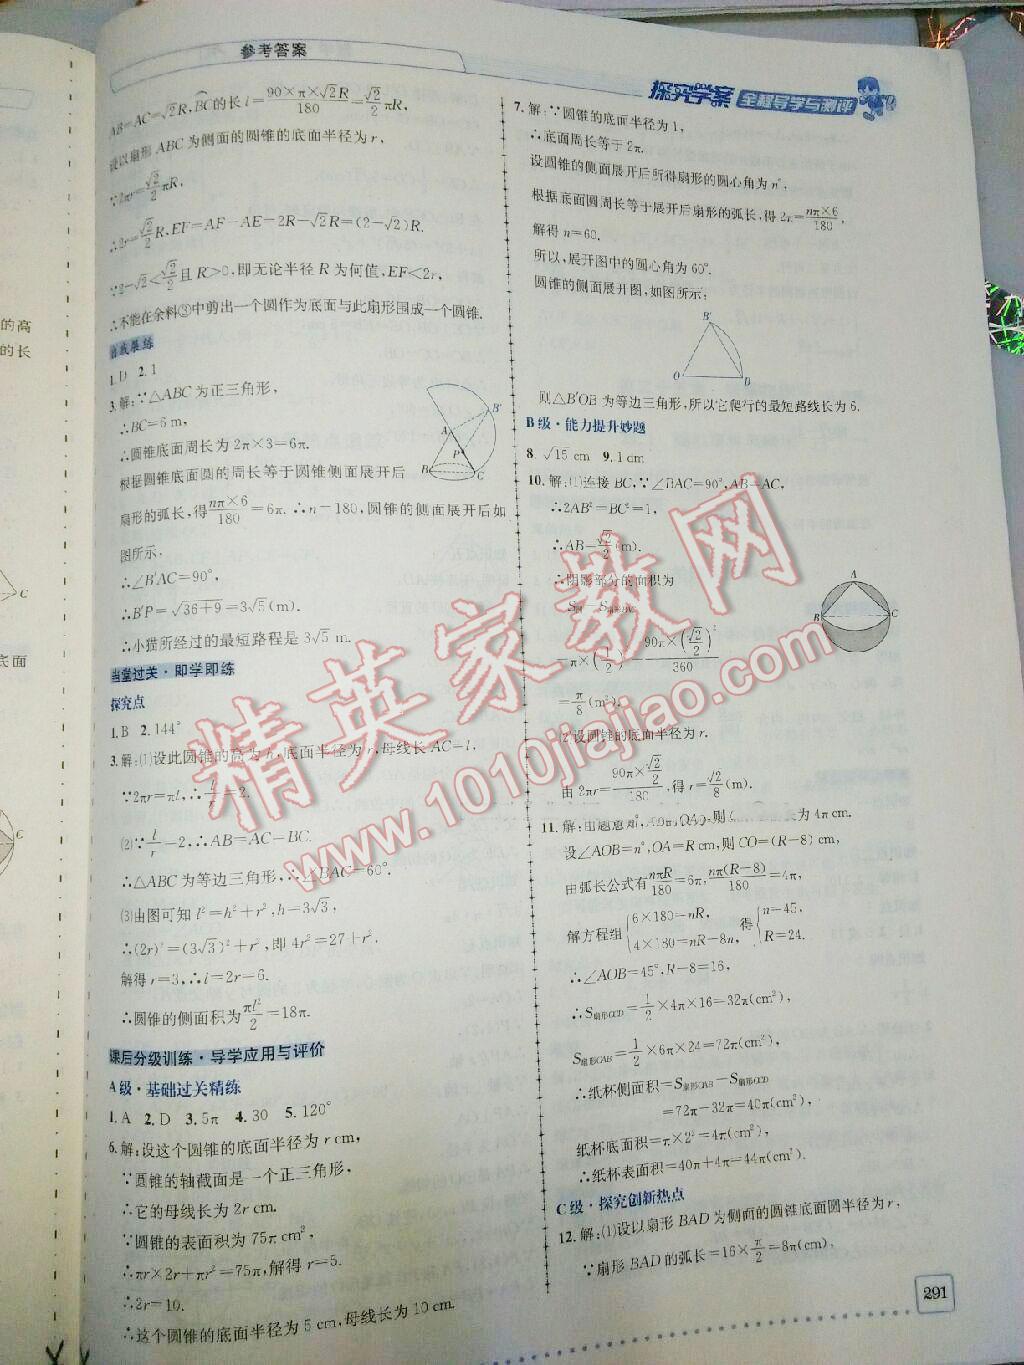 参考答案
探究学案 全程导学与测评
AB=AC=√2R,BC的长l=90×π×√2R/180=√2/2πR,
设以扇形ABC为侧面的圆锥的底面半径为r,
∵2πr=√2/2πR,
∴2r=√2/2R,EF=AF-AE=2R-√2R=(2-√2)R.
∵2-√2<√2/2且R>0,即无论半径R为何值,EF<2r,
∴不能在余料③中剪出一个圆作为底面与此扇形围成一个圆锥.
1.D 2.1
3.解:∵△ABC为正三角形,
∴BC=6 m,
∴圆锥底面周长为2π×3=6π.
根据圆锥底面圆的周长等于圆锥侧面展开后
扇形的弧长,得nπ×6/180=6π.∴n=180,圆锥的侧面展开后如
图所示.
∴∠B′AC=90°,
∴B′P=√36+9=3√5(m).
∴小猫所经过的最短路程是3√5 m.
A
B′
P
B
C
当堂过关·即学即练
探究点
1.B 2.144°
3.解:(1)设此圆锥的高为h,底面半径为r,母线长AC=l,
∵2πr=πl,∴l/r=2.
(2)∵l/r=2,∴AB=AC=BC.
∴△ABC为等边三角形,∴∠BAC=60°.
(3)由图可知l²=h²+r²,h=3√3,
∴(2r)²=(3√3)²+r²,即4r²=27+r².
解得r=3,∴l=2r=6.
∴圆锥的侧面积为πl²/2=18π.
课后分级训练·导学应用与评价
A级·基础过关精练
1.A 2.D 3.5π 4.30 5.120°
6.解:设这个圆锥的底面半径为r cm,
∵圆锥的轴截面是一个正三角形,
∴它的母线长为2r cm.
∵圆锥的表面积为75π cm²,
∴πr×2r+πr²=75π,解得r=5.
∴2r=10.
∴这个圆锥的底面半径为5 cm,母线长为10 cm.
7.解:∵圆锥的底面半径为1,
∴底面周长等于2π.
设圆锥的侧面展开后所得扇形的圆心角为n°,
根据底面圆周长等于展开后扇形的弧长,得2π=nπ×6/180,
解得n=60.
所以,展开图中的圆心角为60°.
圆锥的侧面展开图,如图所示:
B′
O
B
则△B′OB为等边三角形,所以它爬行的最短路线长为6.
B级·能力提升妙题
8.√15 cm 9.1 cm
10.解:(1)连接BC,∵∠BAC=90°,AB=AC,
∴2AB²=BC²=1,
∴AB=√2/2(m).
∴阴影部分的面积为
=π×(1/2)²-90π×(√2/2)²/360
=π/8(m²).
A
B
C
(2)设圆锥的底面半径为r.
由2πr=90π×√2/2/180,得r=√2/8(m).
11.解:由题意知,
长为4π cm.
设∠AOB=n°,OA=R cm,则CO=(R-8)cm,
由弧长公式有nπR/180=6π,nπ(R-8)/180=4π,
解方程组{6×180=nR, 4×180=nR-8n, 得{n=45, R=24.
∴∠AOB=45°,R-8=16,
∴S扇形OCD=1/2×4π×16=32π(cm²),
S扇形OAB=1/2×6π×24=72π(cm²),
∴纸杯侧面积=S扇形OAB-S扇形OCD
=72π-32π=40π(cm²),
纸杯底面积=π×2²=4π(cm²),
∴纸杯表面积=40π+4π=44π(cm²).
C级·探究创新热点
12.解:(1)设以扇形BAD为侧面的圆锥底面圆半径为r,
∵扇形BAD的弧长=16×π/2=8π(cm),
291
的高
的长
C
底面
精英家教网
www.1010jiajiao.com